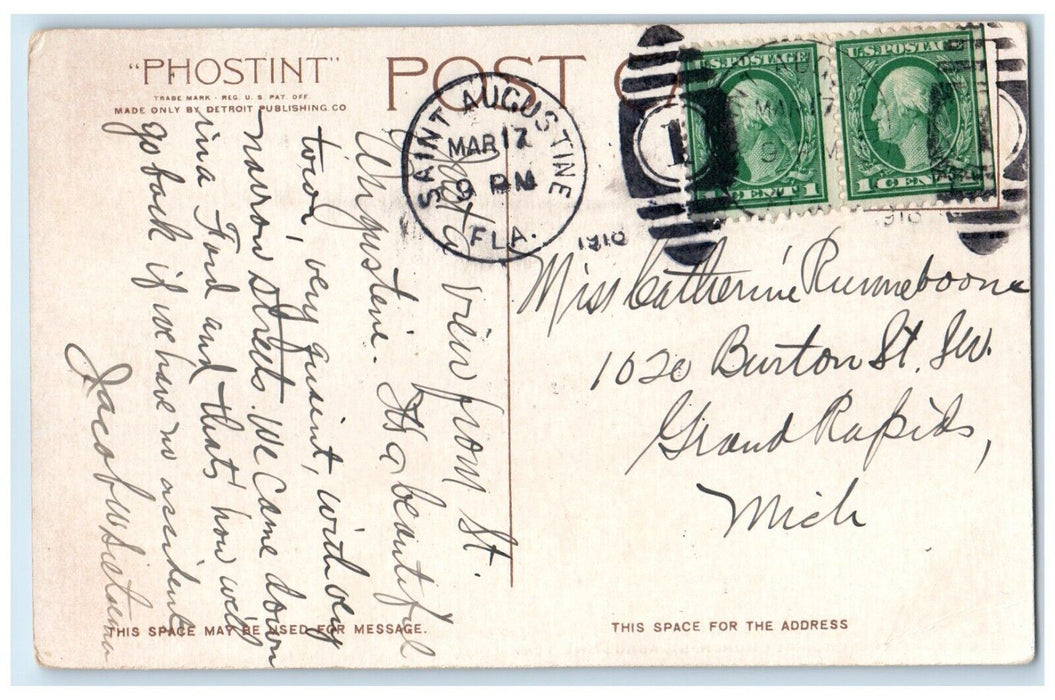 "PHOSTINT"
TRADE MARK - REG. U.S. PAT. OFF.
MADE ONLY BY DETROIT PUBLISHING CO
POST CA
SAINT AUGUSTINE
MAR 17
9 PM
FLA.
1918
1
U.S. POSTAGE
1 CENT 1
U.S. POSTAGE
1 CENT 1
MAR 17
9 PM
1918
a view from St.
Augustine. It's a beautiful
town, very quaint, with very
narrow streets. We came down
in a Ford and that's how we'll
go back if we have no accident
Jacob
Miss Catherine Runneboone
1020 Burton St. SW.
Grand Rapids,
Mich
THIS SPACE MAY BE USED FOR MESSAGE.
THIS SPACE FOR THE ADDRESS